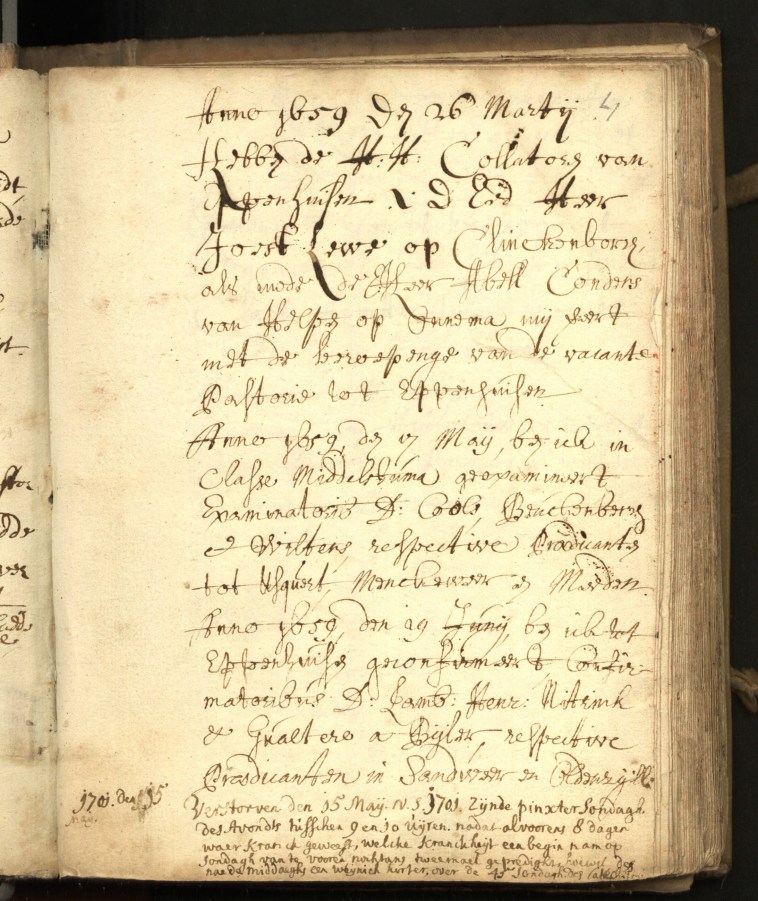 Anno 1659 den 26 Martij 4
Hebben de H: H: Collatoren van
Eppenhuisen
Joest Lewe op Clinckenborg,
als mede de Heer Abell Conders
van Helpen op Ennema mij vert
met de beroepenge van de vacante
Pastorie tot Eppenhuisen
Anno 1659, den 17 Maij, ben ick in
Classe Middelstuma geexamineert
Examinatoris D: Cools, Beuckenberg
& Wiltens respective Prædicanten
tot Usquert, Menckeweer en Meeden.
Anno 1659, den 29 Junij, ben ick tot
Eppenhuisen geconfirmeert Confir-
matoribus D: Lamb: Henr: Nitrink
& Gualtero a Bijler, respective
Prædicanten in Sandweer en Oldenzijll.
1701. Den 15
Maij.
Verstorven den 15 Maij. N. S. 1701. Zijnde pinxter sondagh.
des Avonds tusschen 9 en 10 uijren. nadat alvoorens 8 dagen
waer kranck geweest, welke kranckheijt een begin nam op
sondagh van te vooren nochtans tweemael gepredight, hoewel des
nae de middaghs een weynich korter, over de 45 sondagh des